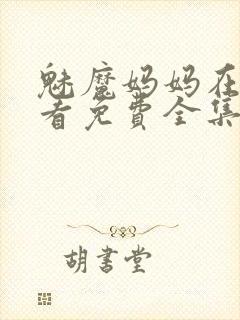 魅魔妈妈在
看免费全集
胡書堂